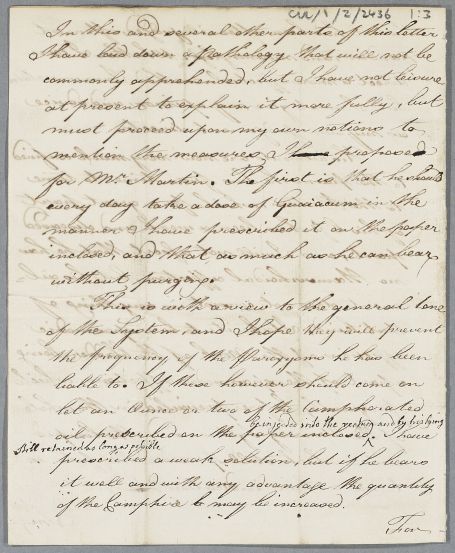 CUL/1/2/2436 1:3
In this and several other parts of this letter
I have laid down a Pathology that will not be
commonly apprehended, but I have not leisure
at present to explain it more fully, but
must proceed upon my own notions to
mention the measures I have proposed
for Mr. Martin. The first is that he should
every day take a dose of Guaiacum in the
manner I have prescribed it on the paper
inclosed, and that as much as he can bear
without purging.
This is with a view to the general tone
of the System, and I hope they will prevent
the frequency of the Paroxysms he has been
liable to. If these however should come on
let an Ounce or two of the Camphorated
be injected into the rectum and by holding
oil prescribed on the paper inclosed. I have
still retained as long as possible
prescribed a weak solution, but if he bears
it well and with any advantage the quantity
of the Camphire may be increased.
For